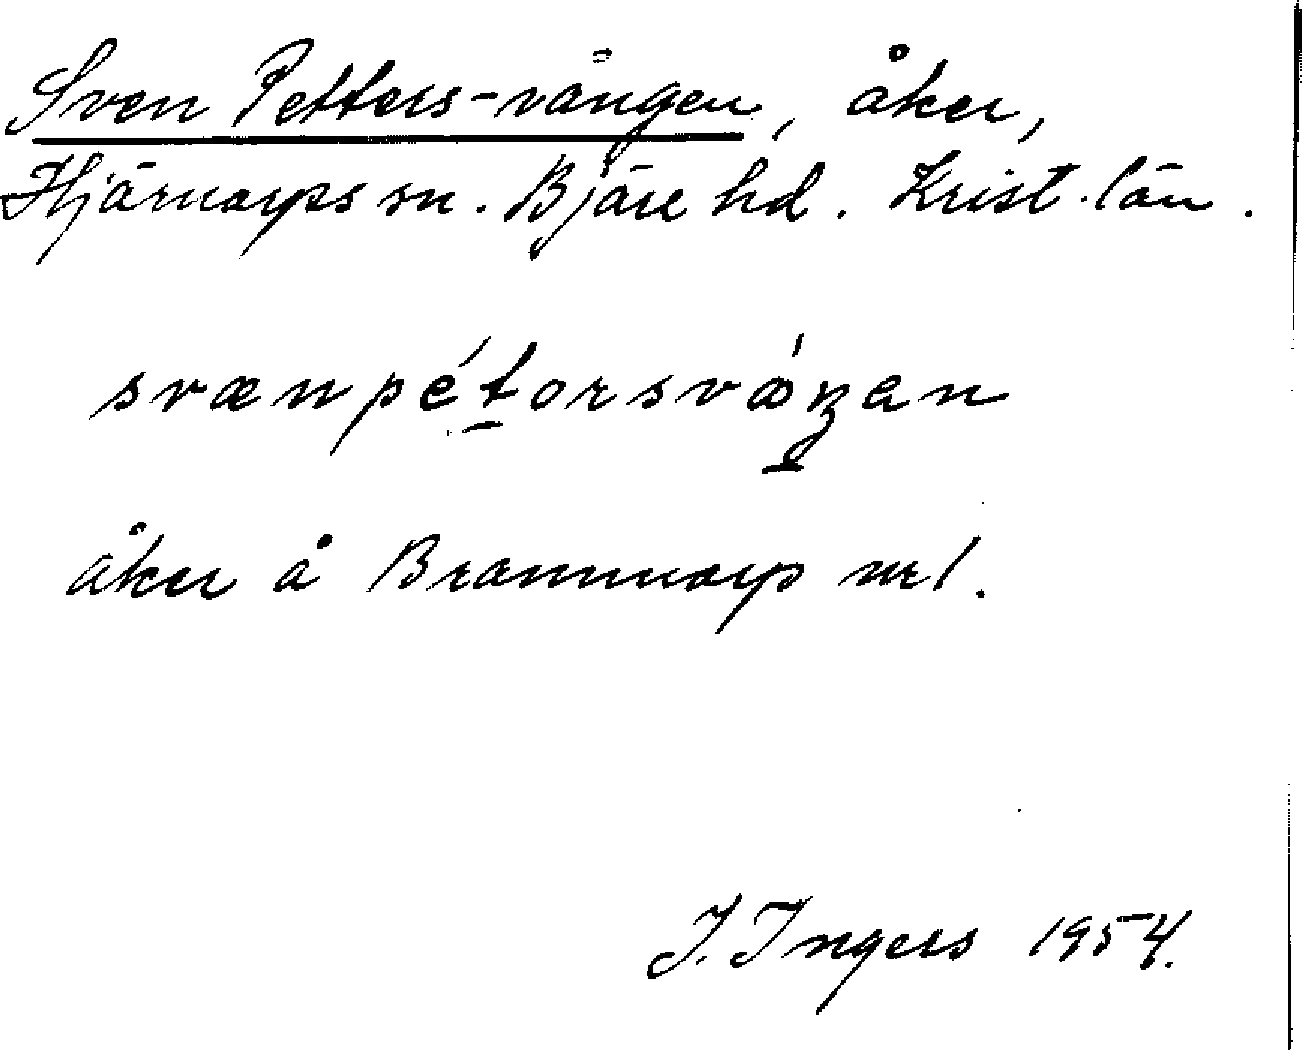 Sven Petters-vången, åker,
Hjärnarps sn. Bjäre hd. Krist. län.
svænpétorsvåŋen
åker å Brannarp nr 1.
I. Ingers 1954.